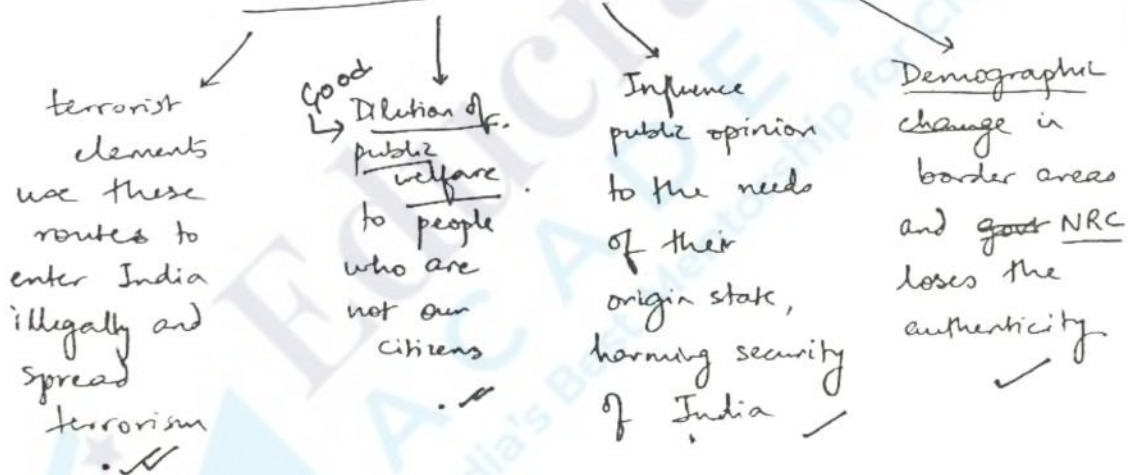 terrorist
elements
use these
routes to
enter India
illegally and
spread
terrorism
Good
Dilution of
public
welfare
to people
who are
not our
citizens
Influence
public opinion
to the needs
of their
origin state,
harming security
of India
Demographic
change in
border areas
and govt NRC
loses the
authenticity
Educra
ACADEM
India's Best Mentorship for C